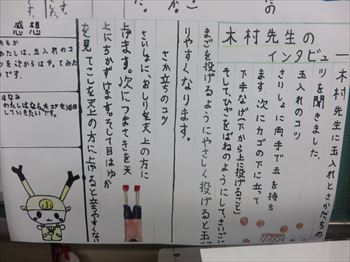 木村先生の
インタビュー
木村先生に玉入れとさかだちの
コツを聞きました。
玉入れのコツ
さいしょに両手で玉を持ち
ます。次にカゴの下に立って
下手なげ(下から上に投げること)
そして、ひざをばねのようにしてさいごに
まごを投げるようにやさしく投げると玉が
りやすくなります。
さか立ちのコツ
さいしょに、おしりを天上の方に
上げます。次につまさきを天
上にちかずけます。そして目はゆか
を見てこしを天上の方に上げると立ちやすくな
感想
わたしは、玉入れのコ
ツを次からはやってみた
です。
はなみ